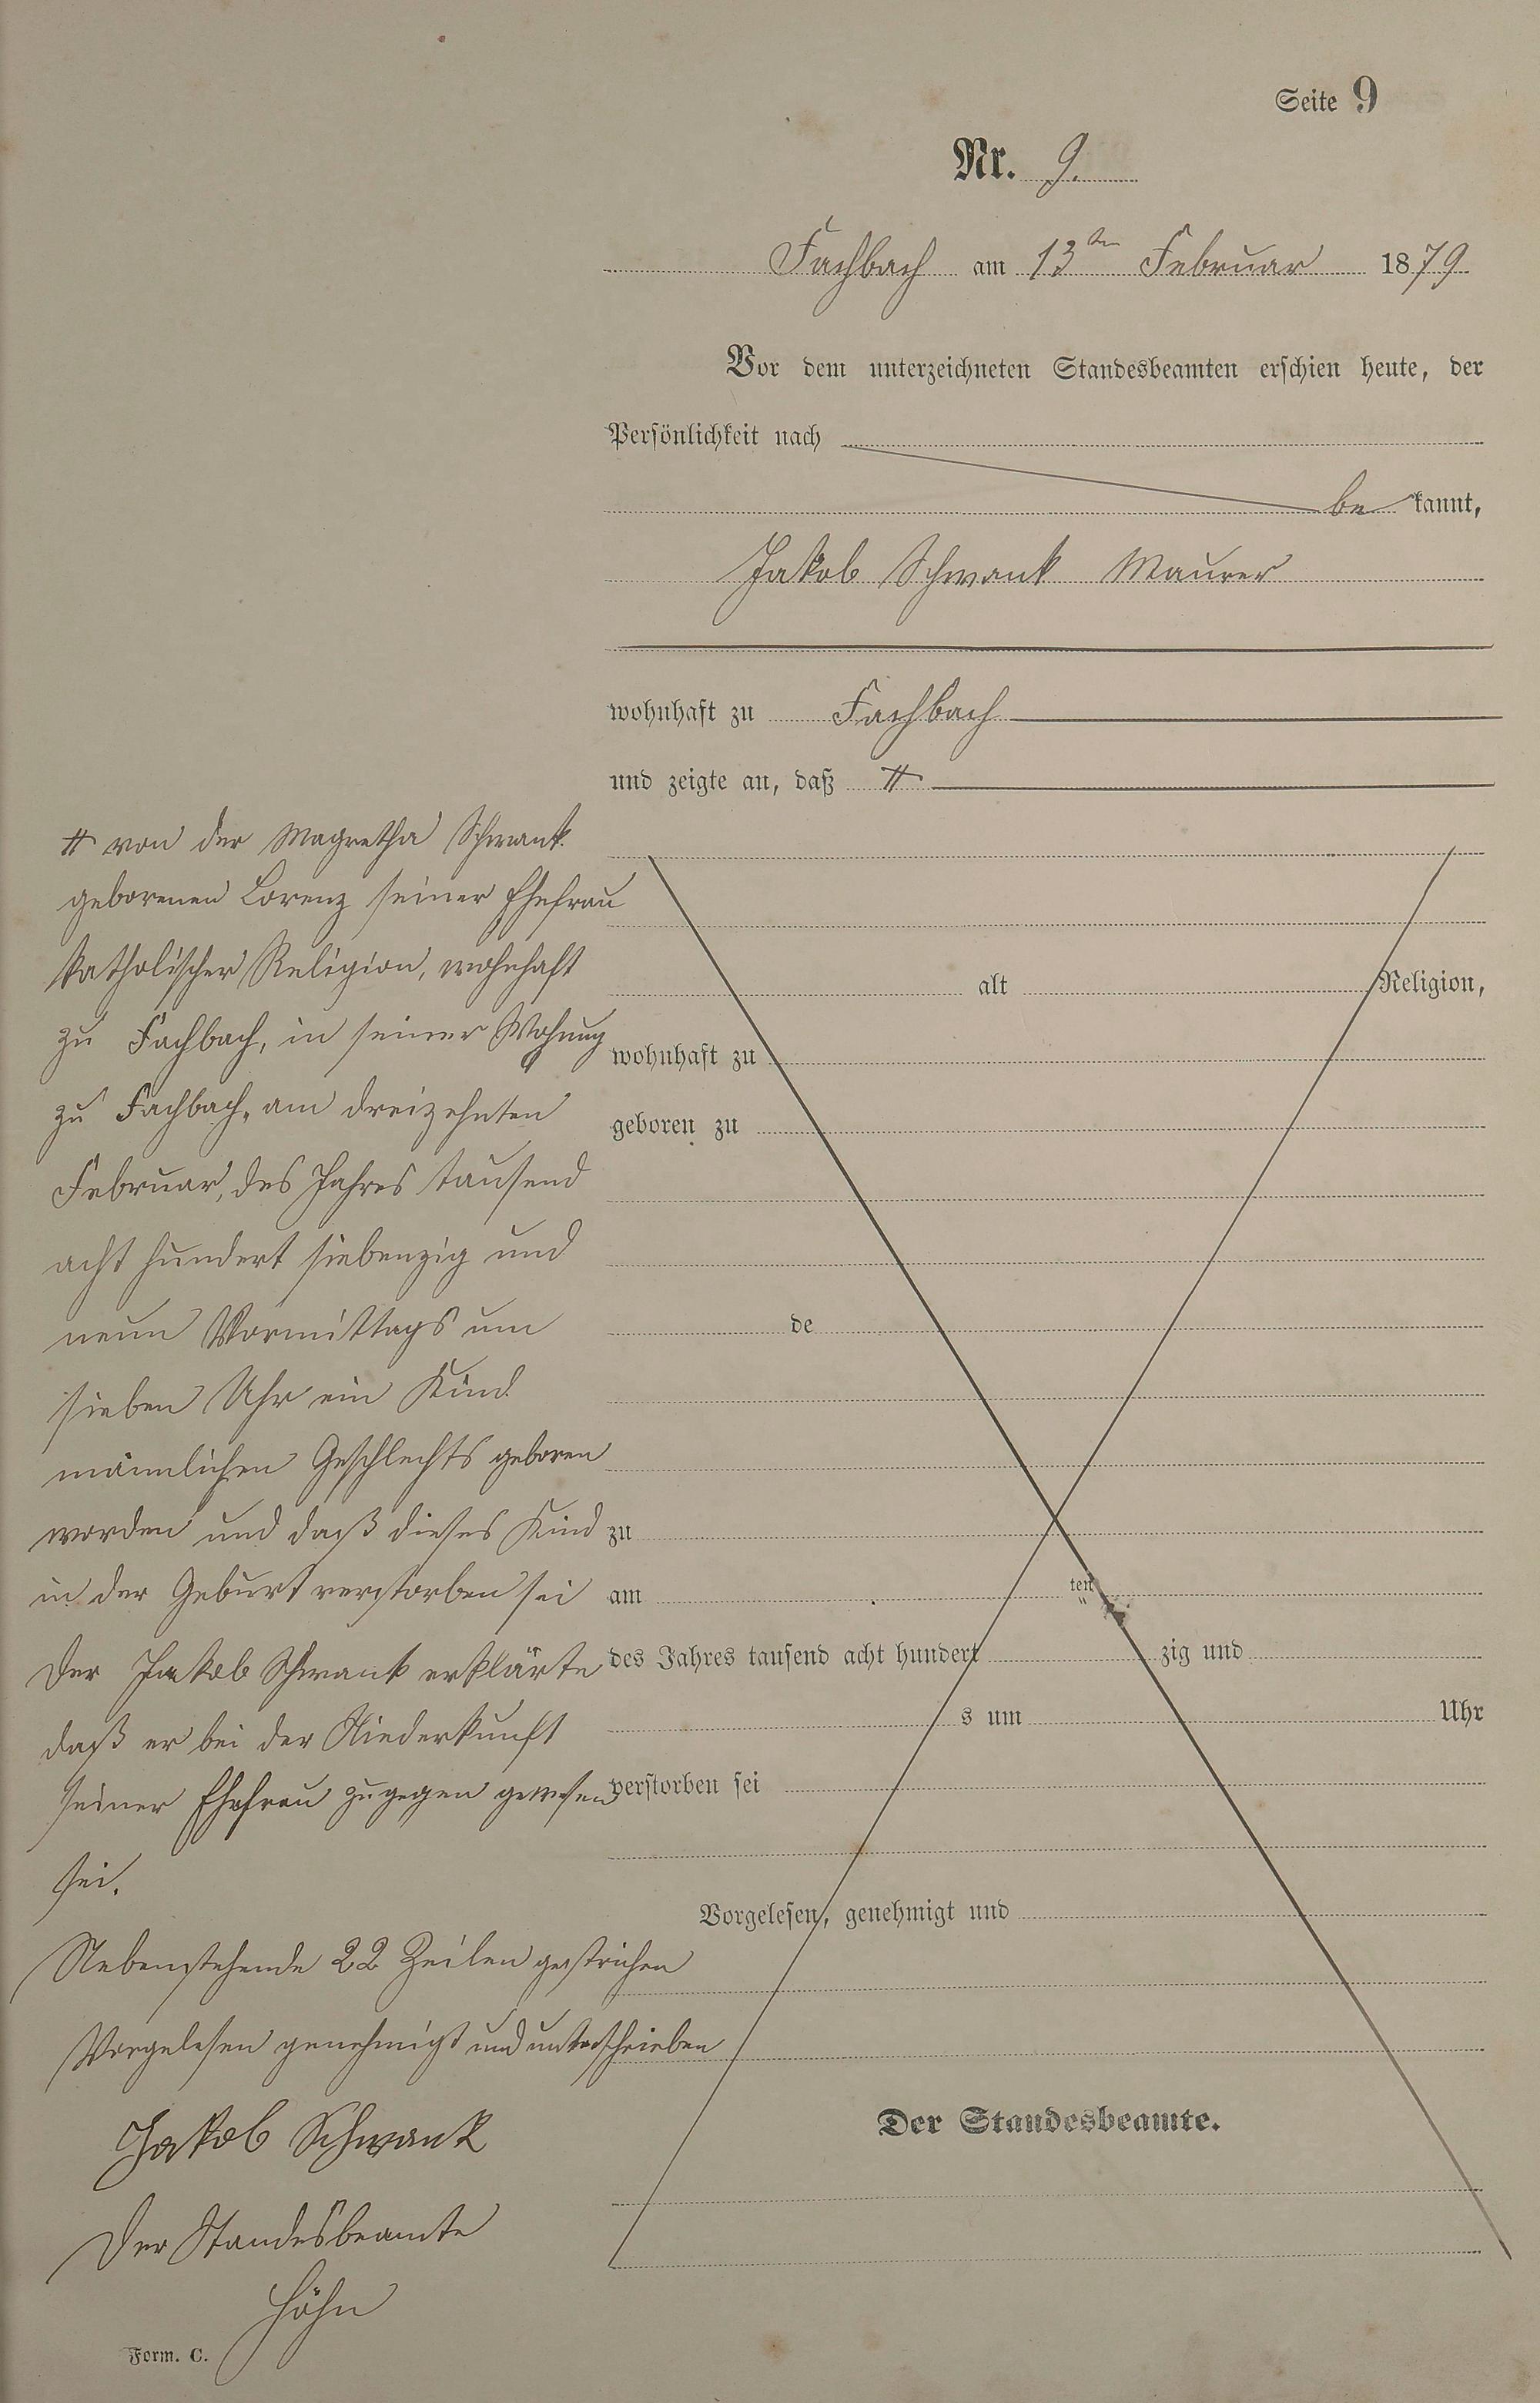 Seite 9
Nr. 9.
Fachbach am 13ten Februar 1879
Vor dem unterzeichneten Standesbeamten erschien heute, der
Persönlichkeit nach
be kannt,
Jakob Schwank Maurer
wohnhaft zu Fachbach
und zeigte an, daß #
# von der Magretha Schwank
geborenen Lorenz seiner Ehefrau
katholischer Religion, wohnhaft
zu Fachbach, in seiner Wohnung
zu Fachbach, am dreizehnten
Februar, des Jahres tausend
acht hundert siebenzig und
neun Vormittags um
sieben Uhr ein Kind
männlichen Geschlechts geboren
worden und daß dieses Kind
in der Geburt verstorben sei
Der Jakob Schwank erklärte
daß er bei der Niederkunft
seiner Ehefrau zugegen gewesen
sei.
Nebenstehende 22 Zeilen gestrichen
Vorgelesen genehmigt und unterschrieben
Jakob Schwank
Der Standesbeamte
Höhn
alt Religion,
wohnhaft zu
geboren zu
de
zu
am ten
des Jahres tausend acht hundert zig und
s um Uhr
verstorben sei
Vorgelesen, genehmigt und
Der Standesbeamte.
Form. C.